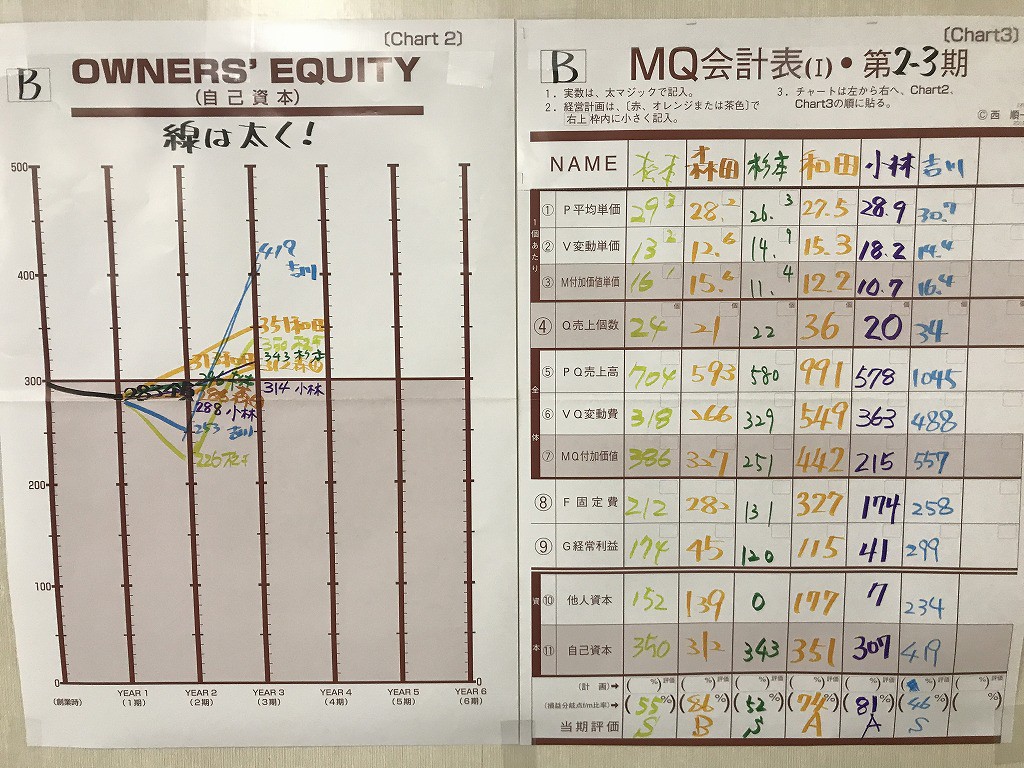 〔Chart 2〕
B
OWNERS' EQUITY
（自己資本）
線は太く！
500
400
300
200
100
0
419
吉川
351和田
343杉本
312森田
314小林
288小林
253吉川
（創業時）
YEAR 1
（1期）
YEAR 2
（2期）
YEAR 3
（3期）
YEAR 4
（4期）
YEAR 5
（5期）
YEAR 6
（6期）
〔Chart3〕
B
MQ会計表(I)・第2-3期
1．実数は、太マジックで記入。
2．経営計画は、〔赤、オレンジまたは茶色〕で
右上 枠内に小さく記入。
3．チャートは左から右へ、Chart2、
Chart3の順に貼る。
©西 順一
NAME 松本 森田 杉本 和田 小林 吉川
1個あたり
① P平均単価 29.3 28.2 26.3 27.5 28.9 30.7
② V変動単価 13.2 12.6 14.9 15.3 18.2 14.4
③ M付加価値単価 16.1 15.6 11.4 12.2 10.7 16.4
④ Q売上個数 24 21 22 36 20 34
全体
⑤ PQ売上高 704 593 580 991 578 1045
⑥ VQ変動費 318 266 329 549 363 488
⑦ MQ付加価値 386 327 251 442 215 557
⑧ F固定費 212 282 131 327 174 258
⑨ G経常利益 174 45 120 115 41 299
資本
⑩ 他人資本 152 139 0 177 7 234
⑪ 自己資本 350 312 343 351 307 419
（計 画）➡ ( %)評価 ( %)評価 ( %)評価 ( %)評価 ( %)評価 ( %)評価 ( %)評価
（損益分岐点f/m比率）➡ (55%) (86%) (52%) (74%) (81%) (46%) ( %)
当期評価 S B S A A S